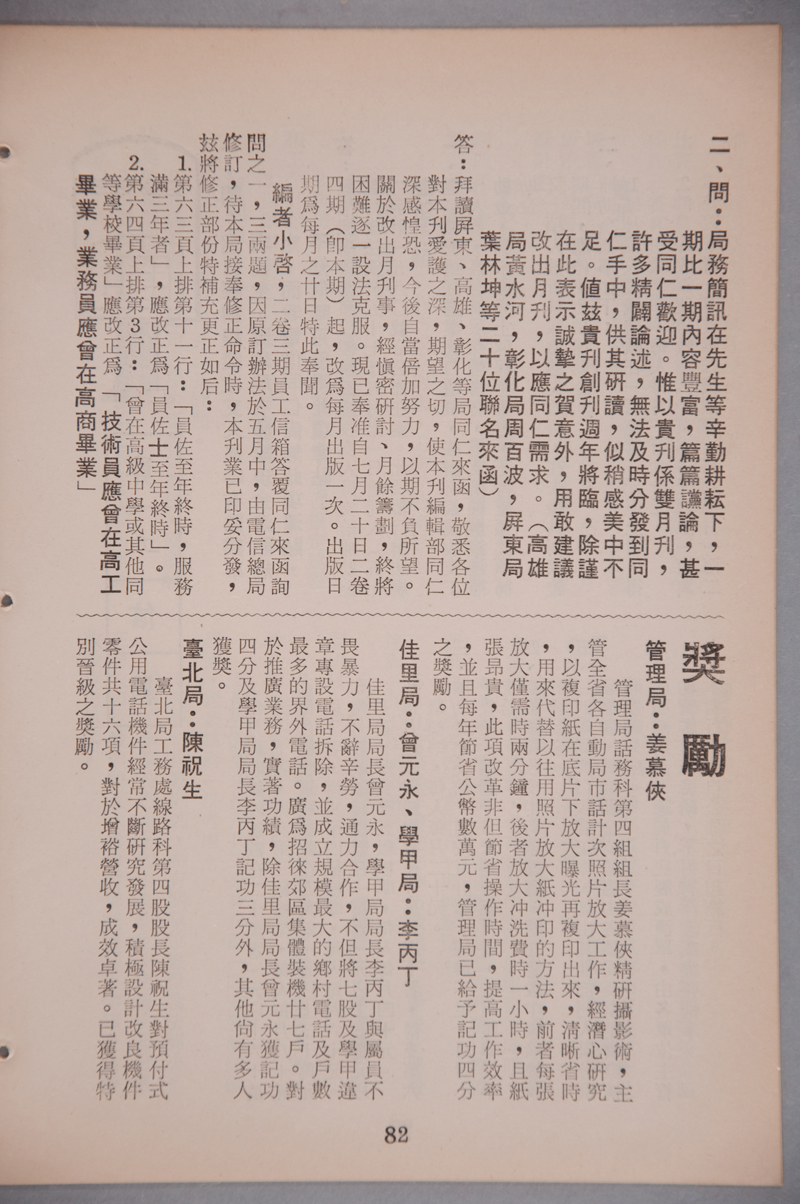 二、問：局務簡訊在先生等辛勤耕耘下，一
期比一期內容豐富，篇篇讜論，甚
受同仁歡迎。惟以貴刊係雙月刊，
許多精闢論述，無法及時分發到同
仁手中，供其研讀，似稍感美中不
足。值茲貴刊創刊週年將臨，除謹
在此表示誠摯之賀意外，用敢建議
改出月刊，以應同仁需求。（高雄
局黃水河，彰化局周百波，屏東局
葉林坤等二十位聯名來函）
答：拜讀屏東、高雄、彰化等局同仁來函，敬悉各位
對本刊愛護之深，期望之切，使本刊編輯部同仁
深感惶恐，今後自當倍加努力，以期不負所望。
關於改出月刊事，經愼密研討、月餘籌劃，終將
困難逐一設法克服。現已奉准自七月二十日二卷
四期（卽本期）起，改爲每月出版一次。出版日
期爲每月之廿日特此奉聞。
編者小啓，二卷三期員工信箱答覆同仁來函詢
問之一，三兩題，因原訂辦法於五月中，由電信總局
修訂，待本局接奉修正命令時，本刊業已印妥分發，
玆將修正部份特補充更正如后：
1.第六三頁上排第十一行：「員佐至年終時，服務
滿三年者」，應改正爲「員佐士至年終時」。
2.第六四頁上排第3行：「曾在高級中學或其他同
等學校畢業」應改正爲「技術員應曾在高工
畢業，業務員應曾在高商畢業」
獎勵
管理局：姜慕俠
管理局話務科第四組組長姜慕俠精研攝影術，主
管全省各自動局市話計次照片放大工作，經潛心研究
，以複印紙在底片下放大曝光再複印出來，淸晰省時
，用來代替以往用照片放大紙冲印的方法，前者每張
放大僅需時兩分鐘，後者放大冲洗費時一小時，且紙
張昂貴，此項改革非但節省操作時間，提高工作效率
，並且每年節省公幣數萬元，管理局已給予記功四分
之獎勵。
佳里局：曾元永、學甲局：李丙丁
佳里局局長曾元永，學甲局局長李丙丁與屬員不
畏暴力，不辭辛勞，通力合作，不但將七股及學甲違
章專設電話拆除，並成立規模最大的鄉村電話及戶數
最多的界外電話。廣爲招徠郊區集體裝機廿七戶。對
於推廣業務，實著功績，除佳里局局長曾元永獲記功
四分及學甲局局長李丙丁記功三分外，其他尙有多人
獲獎。
臺北局：陳祝生
臺北局工務處線路科第四股股長陳祝生對預付式
公用電話機件經常不斷研究發展，積極設計改良機件
零件共十六項，對於增裕營收，成效卓著。已獲得特
別晉級之獎勵。
82